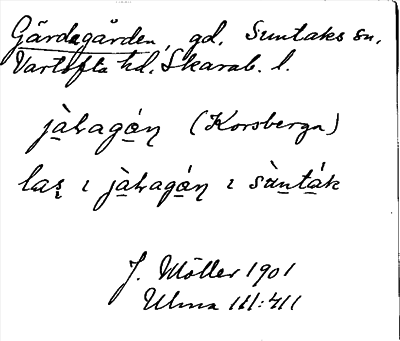 Gärdagården, gd. Suntaks sn.
Vartofta hd. Skarab. l.
jàƚagǿn (Korsberga)
las̨ ɩ jàƚagǿn ɩ sùnták
J. Möller 1901
Ulma 111:411